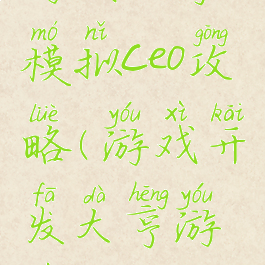 mó nǐ gōng
模拟CEO攻
lüè yóu xì kāi
略(游戏开
fā dà hēng yóu
发大亨游